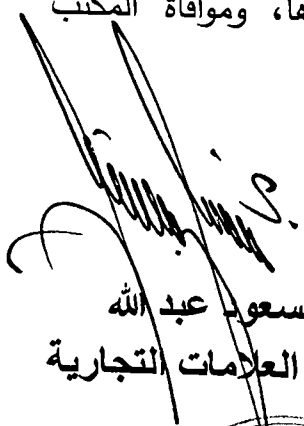 ها، وموافاة المكتب
سعود عبد الله
العلامات التجارية